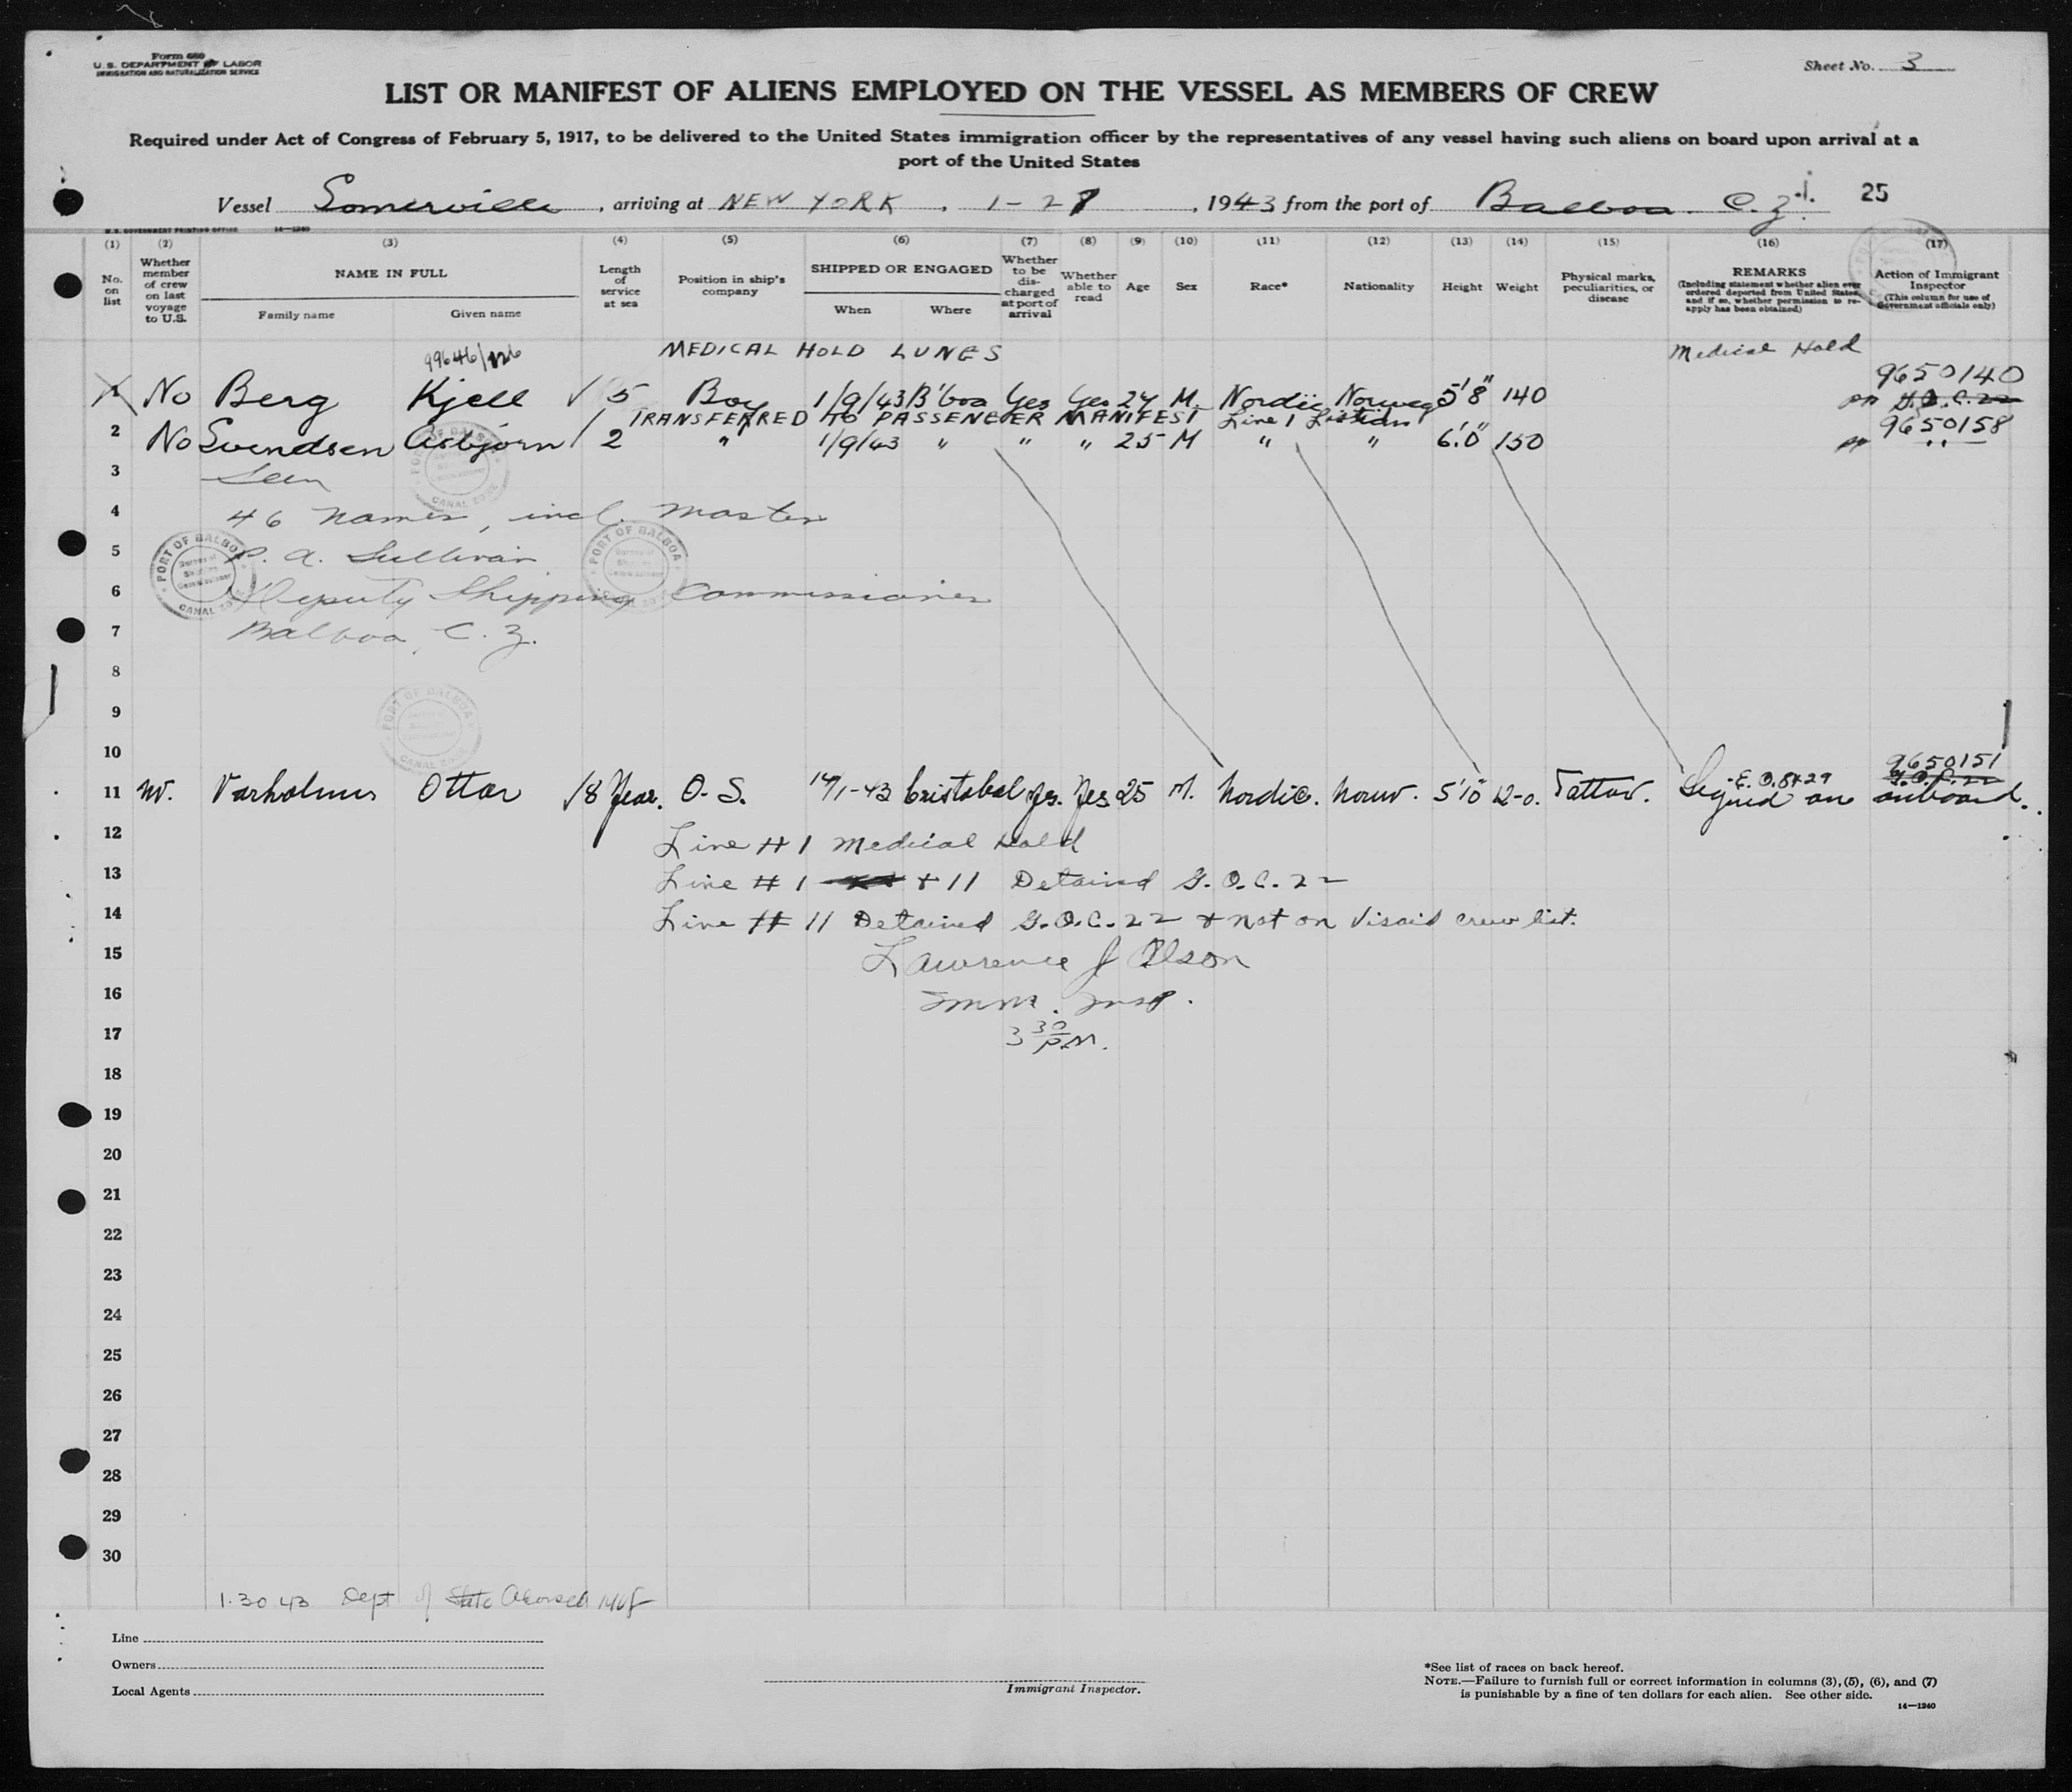 Form 680
U. S. DEPARTMENT OF LABOR
IMMIGRATION AND NATURALIZATION SERVICE
Sheet No. 3
LIST OR MANIFEST OF ALIENS EMPLOYED ON THE VESSEL AS MEMBERS OF CREW
Required under Act of Congress of February 5, 1917, to be delivered to the United States immigration officer by the representatives of any vessel having such aliens on board upon arrival at a
port of the United States
Vessel Somerville, arriving at NEW YORK, 1-28, 1943 from the port of Balboa C.Z. 25
U. S. GOVERNMENT PRINTING OFFICE 14—1240
(1) (2) (3) (4) (5) (6) (7) (8) (9) (10) (11) (12) (13) (14) (15) (16) (17)
No. on list
Whether member of crew on last voyage to U.S.
NAME IN FULL
Family name
Given name
Length of service at sea
Position in ship's company
SHIPPED OR ENGAGED
When
Where
Whether to be discharged at port of arrival
Whether able to read
Age
Sex
Race*
Nationality
Height
Weight
Physical marks, peculiarities, or disease
REMARKS
(Including statement whether alien ever ordered deported from United States, and if so, whether permission to reapply has been obtained)
Action of Immigrant Inspector
(This column for use of Government officials only)
99646/126 MEDICAL HOLD LUNGS Medical Hold
9650140
1 No Berg Kjell √ 5 Boy 1/9/43 B'boa Yes Yes 24 M. Nordic Norweg 5'8" 140 G.O.C. 22
TRANSFERRED TO PASSENGER MANIFEST Line 1
9650158
2 No Svendsen Asbjorn / 2 " 1/9/43 " " " 25 M " " 6'0" 150 " "
3 Seen
4 46 names, incl. Master
5 P. A. Sullivan
6 Deputy Shipping Commissioner
7 Balboa, C. Z.
PORT OF BALBOA
CANAL ZONE
8
9
10
9650151
11 Varholmus Ottar / 8 Year. O. S. 14/1-43 Cristobal Yes. Yes 25 M. Nordic. Norw. 5'10" 12-0. Tattov. Signed on onboard.
E. O. 8429 G.O.C. 22
12 Line # 1 Medical Hold
13 Line # 1 + 11 Detained G.O.C. 22
14 Line # 11 Detained G.O.C. 22 + not on Visaid crew list.
15 Lawrence J Olson
16 Imm. Insp.
17 3 30 P.M.
18
19
20
21
22
23
24
25
26
27
28
29
30
1.30 43 Dept of State
Line
Owners
Local Agents
Immigrant Inspector.
*See list of races on back hereof.
NOTE.—Failure to furnish full or correct information in columns (3), (5), (6), and (7)
is punishable by a fine of ten dollars for each alien. See other side.
14—1240